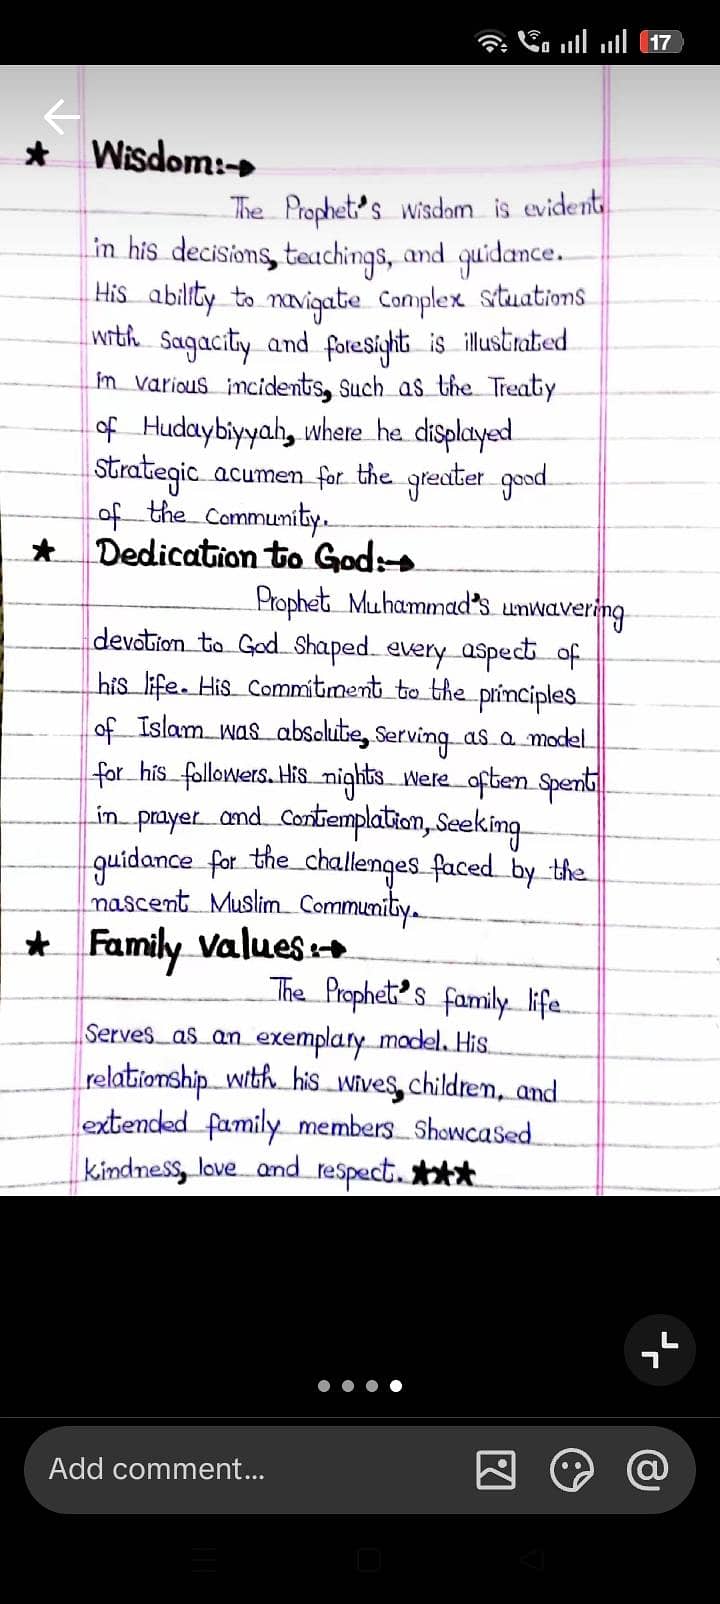 17
★ Wisdom:→
The Prophet's wisdom is evident
in his decisions, teachings, and guidance.
His ability to navigate complex situations
with sagacity and foresight is illustrated
in various incidents, such as the Treaty
of Hudaybiyyah, where he displayed
strategic acumen for the greater good
of the community.
★ Dedication to God:→
Prophet Muhammad's unwavering
devotion to God shaped every aspect of
his life. His commitment to the principles
of Islam was absolute, serving as a model
for his followers. His nights were often spent
in prayer and contemplation, seeking
guidance for the challenges faced by the
nascent Muslim Community.
★ Family values:→
The Prophet's family life
serves as an exemplary model. His
relationship with his wives, children, and
extended family members showcased
kindness, love and respect. ★★★
Add comment...